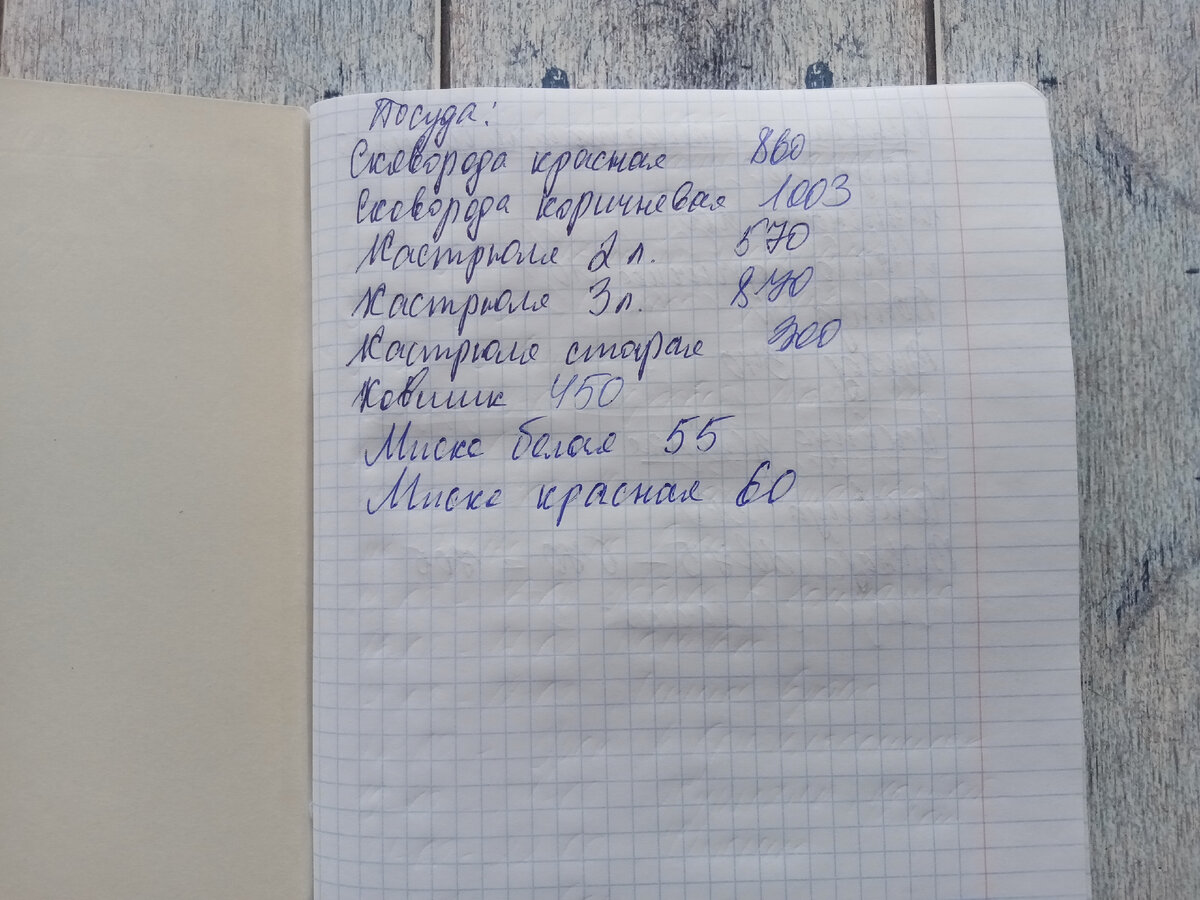 Посуда:
Сковорода красная 860
Сковорода коричневая 1003
Кастрюля 2 л. 570
Кастрюля 3 л. 870
Кастрюля старая 300
Ковшик 450
Миска белая 55
Миска красная 60